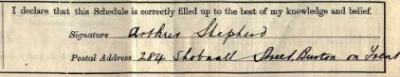 I declare that this Schedule is correctly filled up to the best of my knowledge and belief.
Signature Arthur Shepherd
Postal Address 284 Shobnall Street, Burton on Trent